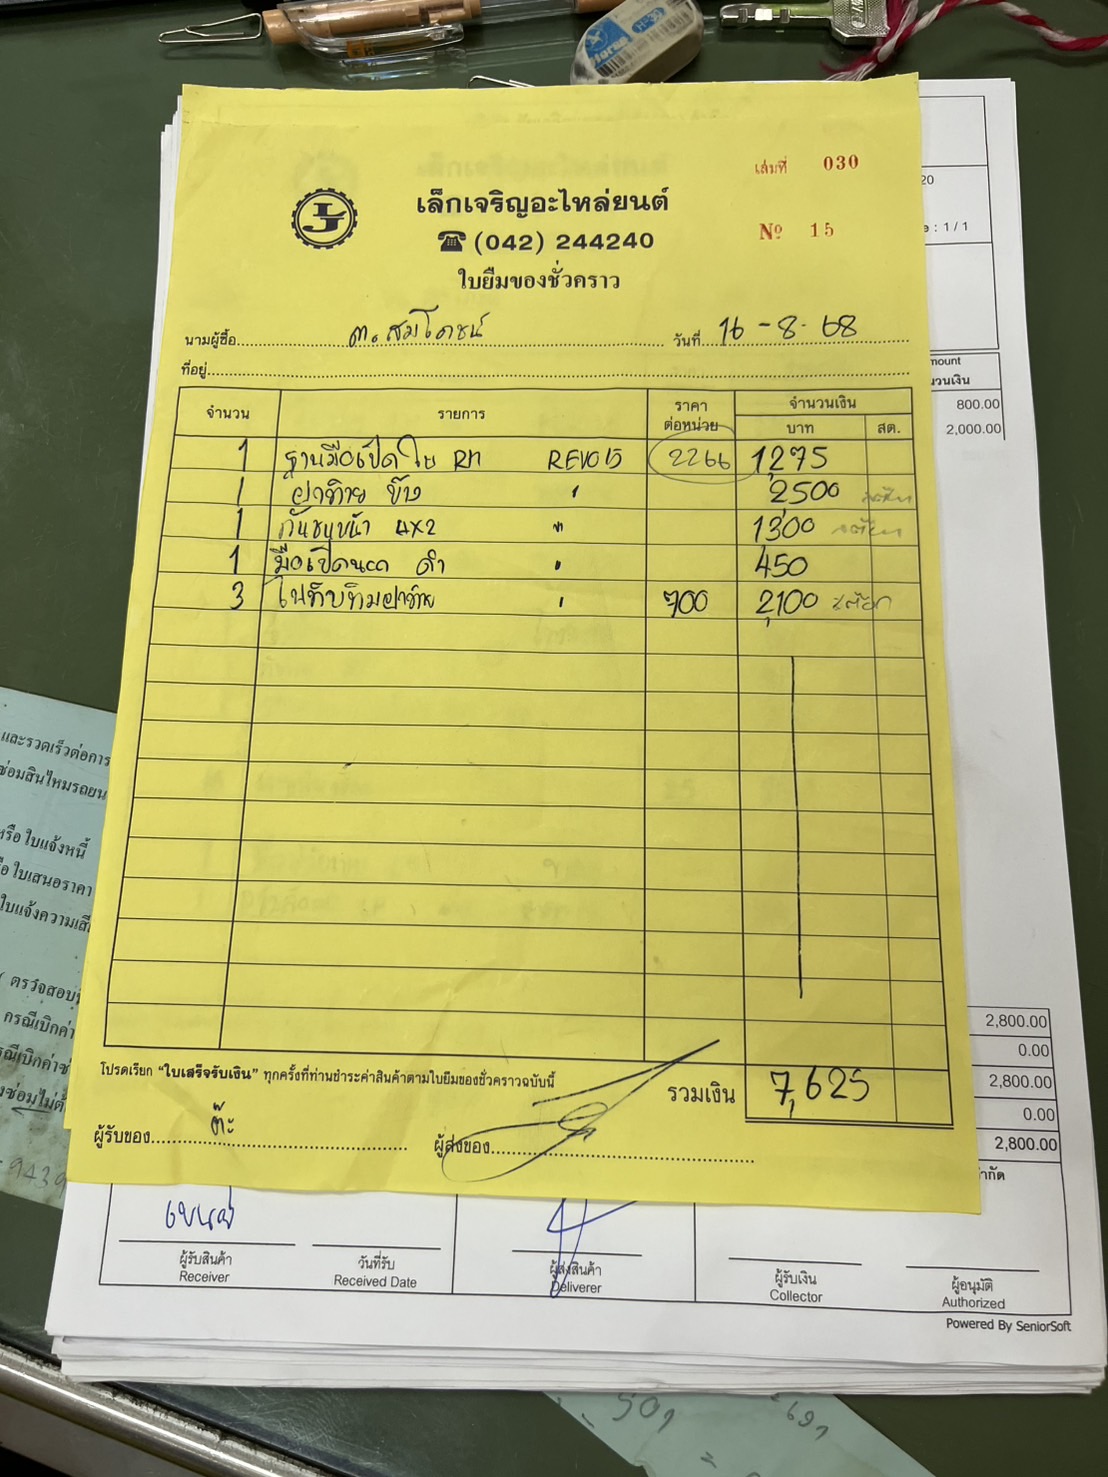 เล่มที่ 030
เล็กเจริญอะไหล่ยนต์
(042) 244240
№ 15
ใบยืมของชั่วคราว
นามผู้ซื้อ ต.สมโภชน์ วันที่ 16-8-68
ที่อยู่
จำนวน รายการ ราคาต่อหน่วย จำนวนเงิน
บาท สต.
1 ฐานมือเปิดใน RH REVO15 2266 1,275
1 ฝาท้าย 2,500
1 กันชนหน้า 4X2 " 1,300
1 มือเปิดนอก ดำ " 450
3 ไฟทับทิมฝาท้าย " 700 2,100
โปรดเรียก "ใบเสร็จรับเงิน" ทุกครั้งที่ท่านชำระค่าสินค้าตามใบยืมของชั่วคราวฉบับนี้
รวมเงิน 7,625
ผู้รับของ ต๊ะ ผู้ส่งของ
20
: 1 / 1
mount
800.00
2,000.00
2,800.00
0.00
2,800.00
0.00
2,800.00
และรวดเร็วต่อการ
ซ่อมสินไหมรถยน
หรือ ใบแจ้งหนี้
ใบเสนอราคา
ใบแจ้งความเสี
ตรวจสอบ
กรณีเบิกค่า
ผู้รับสินค้า
Receiver
วันที่รับ
Received Date
ผู้ส่งสินค้า
Deliverer
ผู้รับเงิน
Collector
ผู้อนุมัติ
Authorized
Powered By SeniorSoft